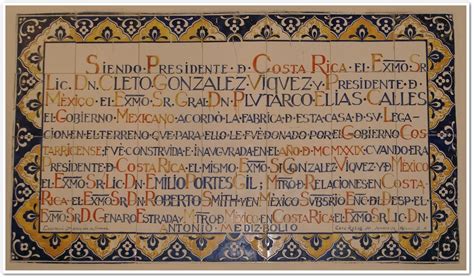 SIENDO · PRESIDENTE · D · COSTA RICA · EL · EXMO · SR
LIC · DN · CLETO · GONZALEZ · VIQVEZ · Y · PRESIDENTE · D
MÉXICO · EL · EXMO · SR · GRAL · DN · PLVTARCO · ELÍAS · CALLES
EL GOBIERNO · MEXICANO · ACORDÓ · LA · FABRICA · D · ESTA CASA · D · SV · LEGA
CION · EN EL TERRENO · QVE · PARA ELLO · LE FVÉ DONADO · POR EL GOBIERNO · COS
TARRICENSE · FVÉ · CONSTRVIDA · E · INAVGVRADA · EN EL · AÑO · D · MCMXXIX · CVANDO · ERA
PRESIDENTE · D · COSTA · RICA · EL · MISMO · EXMO · SR · GONZALEZ · VIQVEZ · Y · D · MÉXICO
EL · EXMO · SR · LIC · DN · EMILIO · PORTES · GIL · MTRO · D · RELACIONES · EN · COSTA
RICA · EL · EXMO · SR · DN · ROBERTO · SMITH · Y · EN · MÉXICO · SVBSRIO · ENC · DL · DESP · EL
EXMO · SR · D · GENARO · ESTRADA · Y · MTRO · D · MÉXICO · EN · COSTA RICA · EL · EXMO · SR · LIC · DN
ANTONIO · MEDIZ · BOLIO